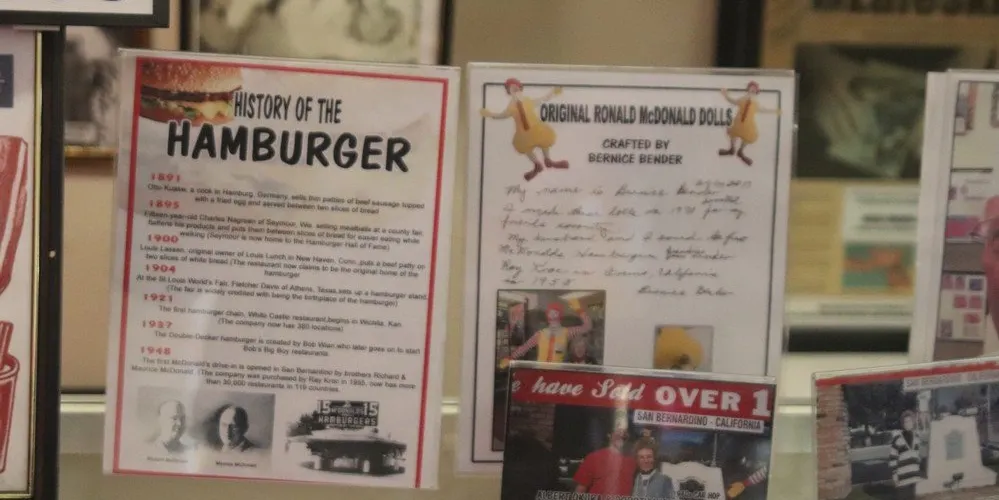 HISTORY OF THE
HAMBURGER
1891
Otto Kuase, a cook in Hamburg, Germany, sells thin patties of beef sausage topped
with a fried egg and served between two slices of bread
1895
Fifteen-year-old Charles Nagreen of Seymour, Wis. selling meatballs at a county fair,
flattens his products and puts them between slices of bread for easier eating while
walking (Seymour is now home to the Hamburger Hall of Fame)
1900
Louis Lassen, original owner of Louis Lunch in New Haven, Conn. puts a beef patty on
two slices of white bread (The restaurant now claims to be the original home of the
hamburger
1904
At the St Louis World's Fair, Fletcher Davis of Athens, Texas, sets up a hamburger stand.
(The fair is widely credited with being the birthplace of the hamburger)
1921
The first hamburger chain, White Castle restaurant, begins in Wichita, Kan
(The company now has 380 locations)
1937
The Double-Decker hamburger is created by Bob Wian who later goes on to start
Bob's Big Boy restaurants
1948
The first McDonald's drive-in is opened in San Bernardino by brothers Richard &
Maurice McDonald. (The company was purchased by Ray Kroc in 1955, now has more
than 30,000 restaurants in 119 countries.
15 McDONALD'S 15
HAMBURGERS
ORIGINAL RONALD McDONALD DOLLS
CRAFTED BY
BERNICE BENDER
My name is Bernice Bender
I made these dolls in for my
friends
My and I to first
McDonalds
Ray Kroc in California
in 1955
Bernice Bender
e have Sold OVER 1
SAN BERNARDINO - CALIFORNIA
SAN BERNARDINO - CALIFO